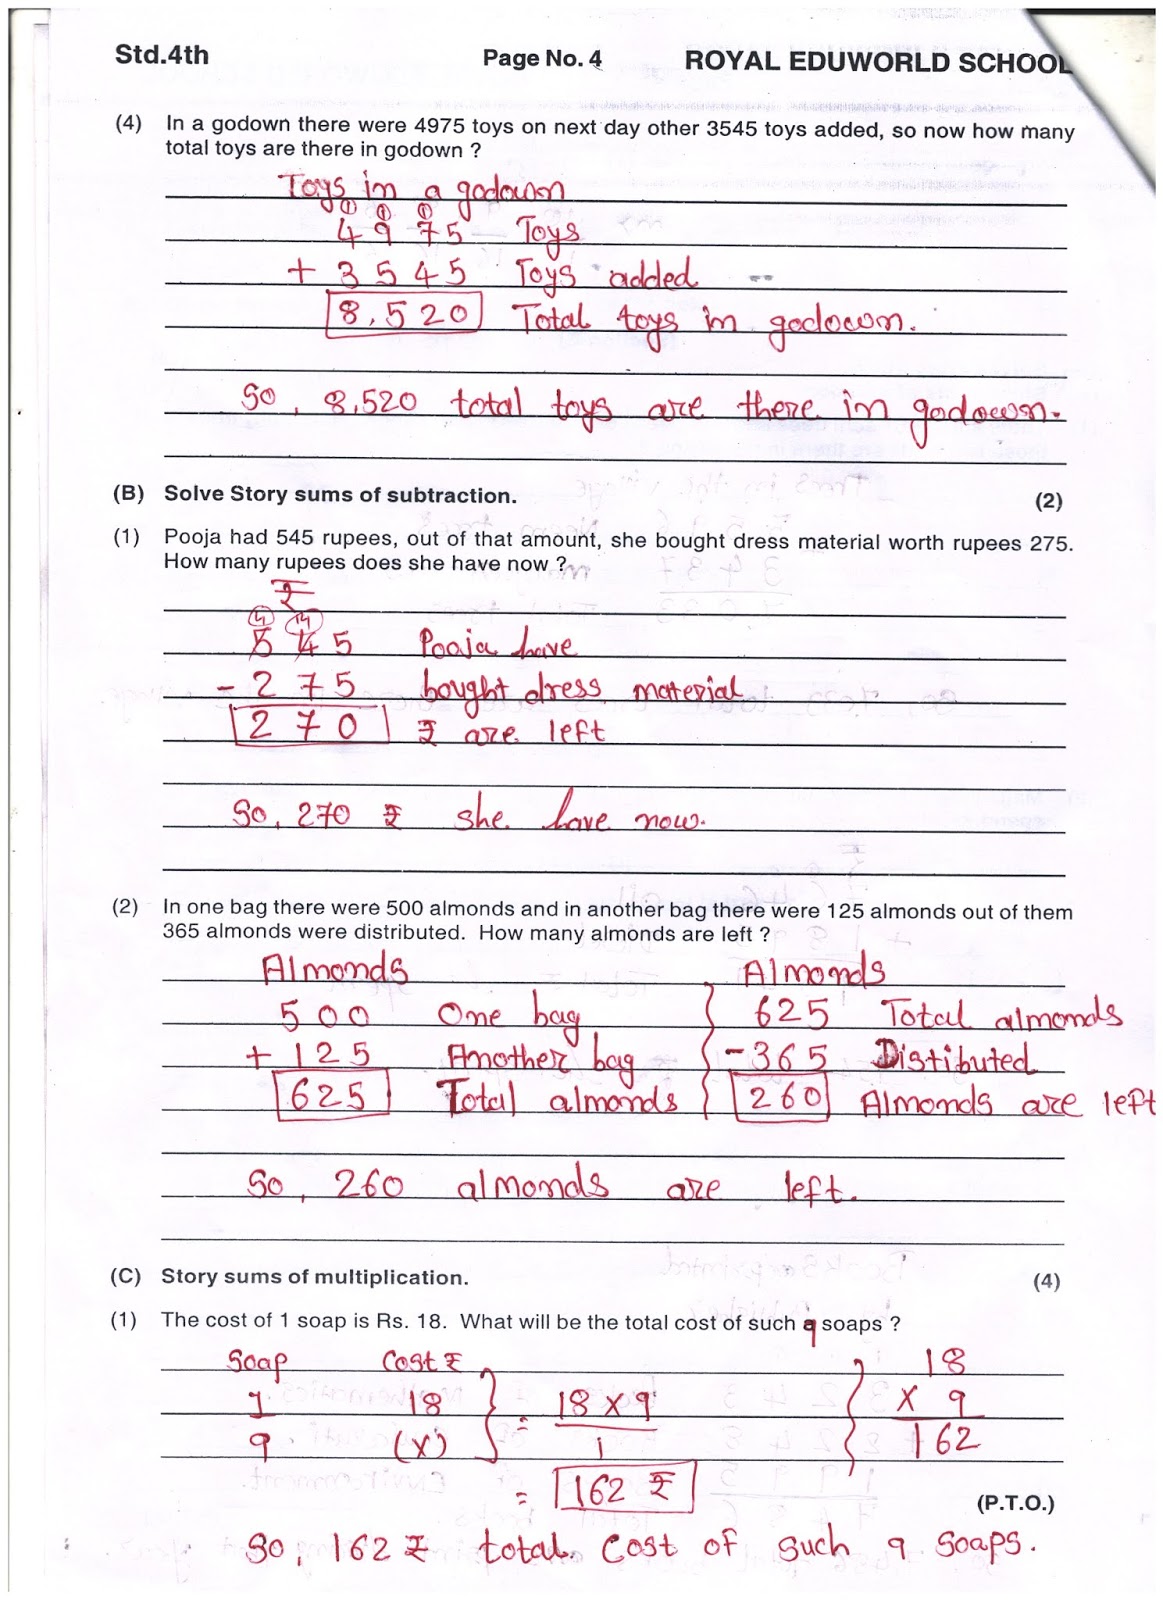 Std.4th Page No. 4 ROYAL EDUWORLD SCHOOL
(4) In a godown there were 4975 toys on next day other 3545 toys added, so now how many
total toys are there in godown ?
Toys in a godown
① ① ①
4 9 7 5 Toys
+ 3 5 4 5 Toys added
8,520 Total toys in godown.
So, 8,520 total toys are there in godown.
(B) Solve Story sums of subtraction. (2)
(1) Pooja had 545 rupees, out of that amount, she bought dress material worth rupees 275.
How many rupees does she have now ?
₹
4 14
5 4 5 Pooja have
- 2 7 5 bought dress material
2 7 0 ₹ are left
So, 270 ₹ she have now.
(2) In one bag there were 500 almonds and in another bag there were 125 almonds out of them
365 almonds were distributed. How many almonds are left ?
Almonds Almonds
500 One bag 625 Total almonds
+ 125 Another bag - 365 Distibuted
625 Total almonds 260 Almonds are left
So, 260 almonds are left.
(C) Story sums of multiplication. (4)
(1) The cost of 1 soap is Rs. 18. What will be the total cost of such 9 soaps ?
Soap Cost ₹ 18
1 18 = 18 × 9 × 9
9 (x) 1 162
= 162 ₹
(P.T.O.)
So, 162 ₹ total cost of such 9 soaps.